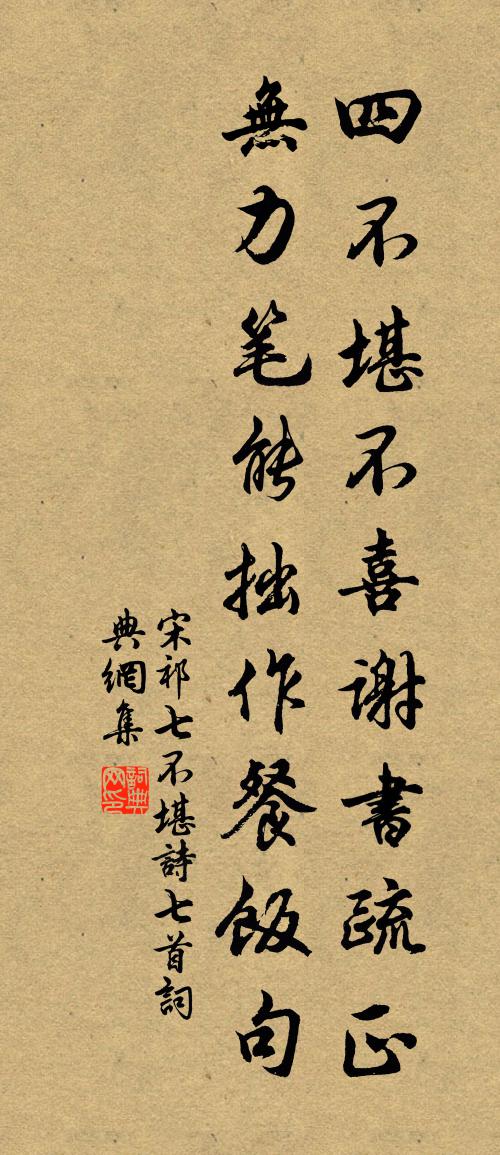 四不堪不喜謝書疏正
無力笔能拙作餐飯句
宋祁七不堪詩七首詞
典網集
詞典网印